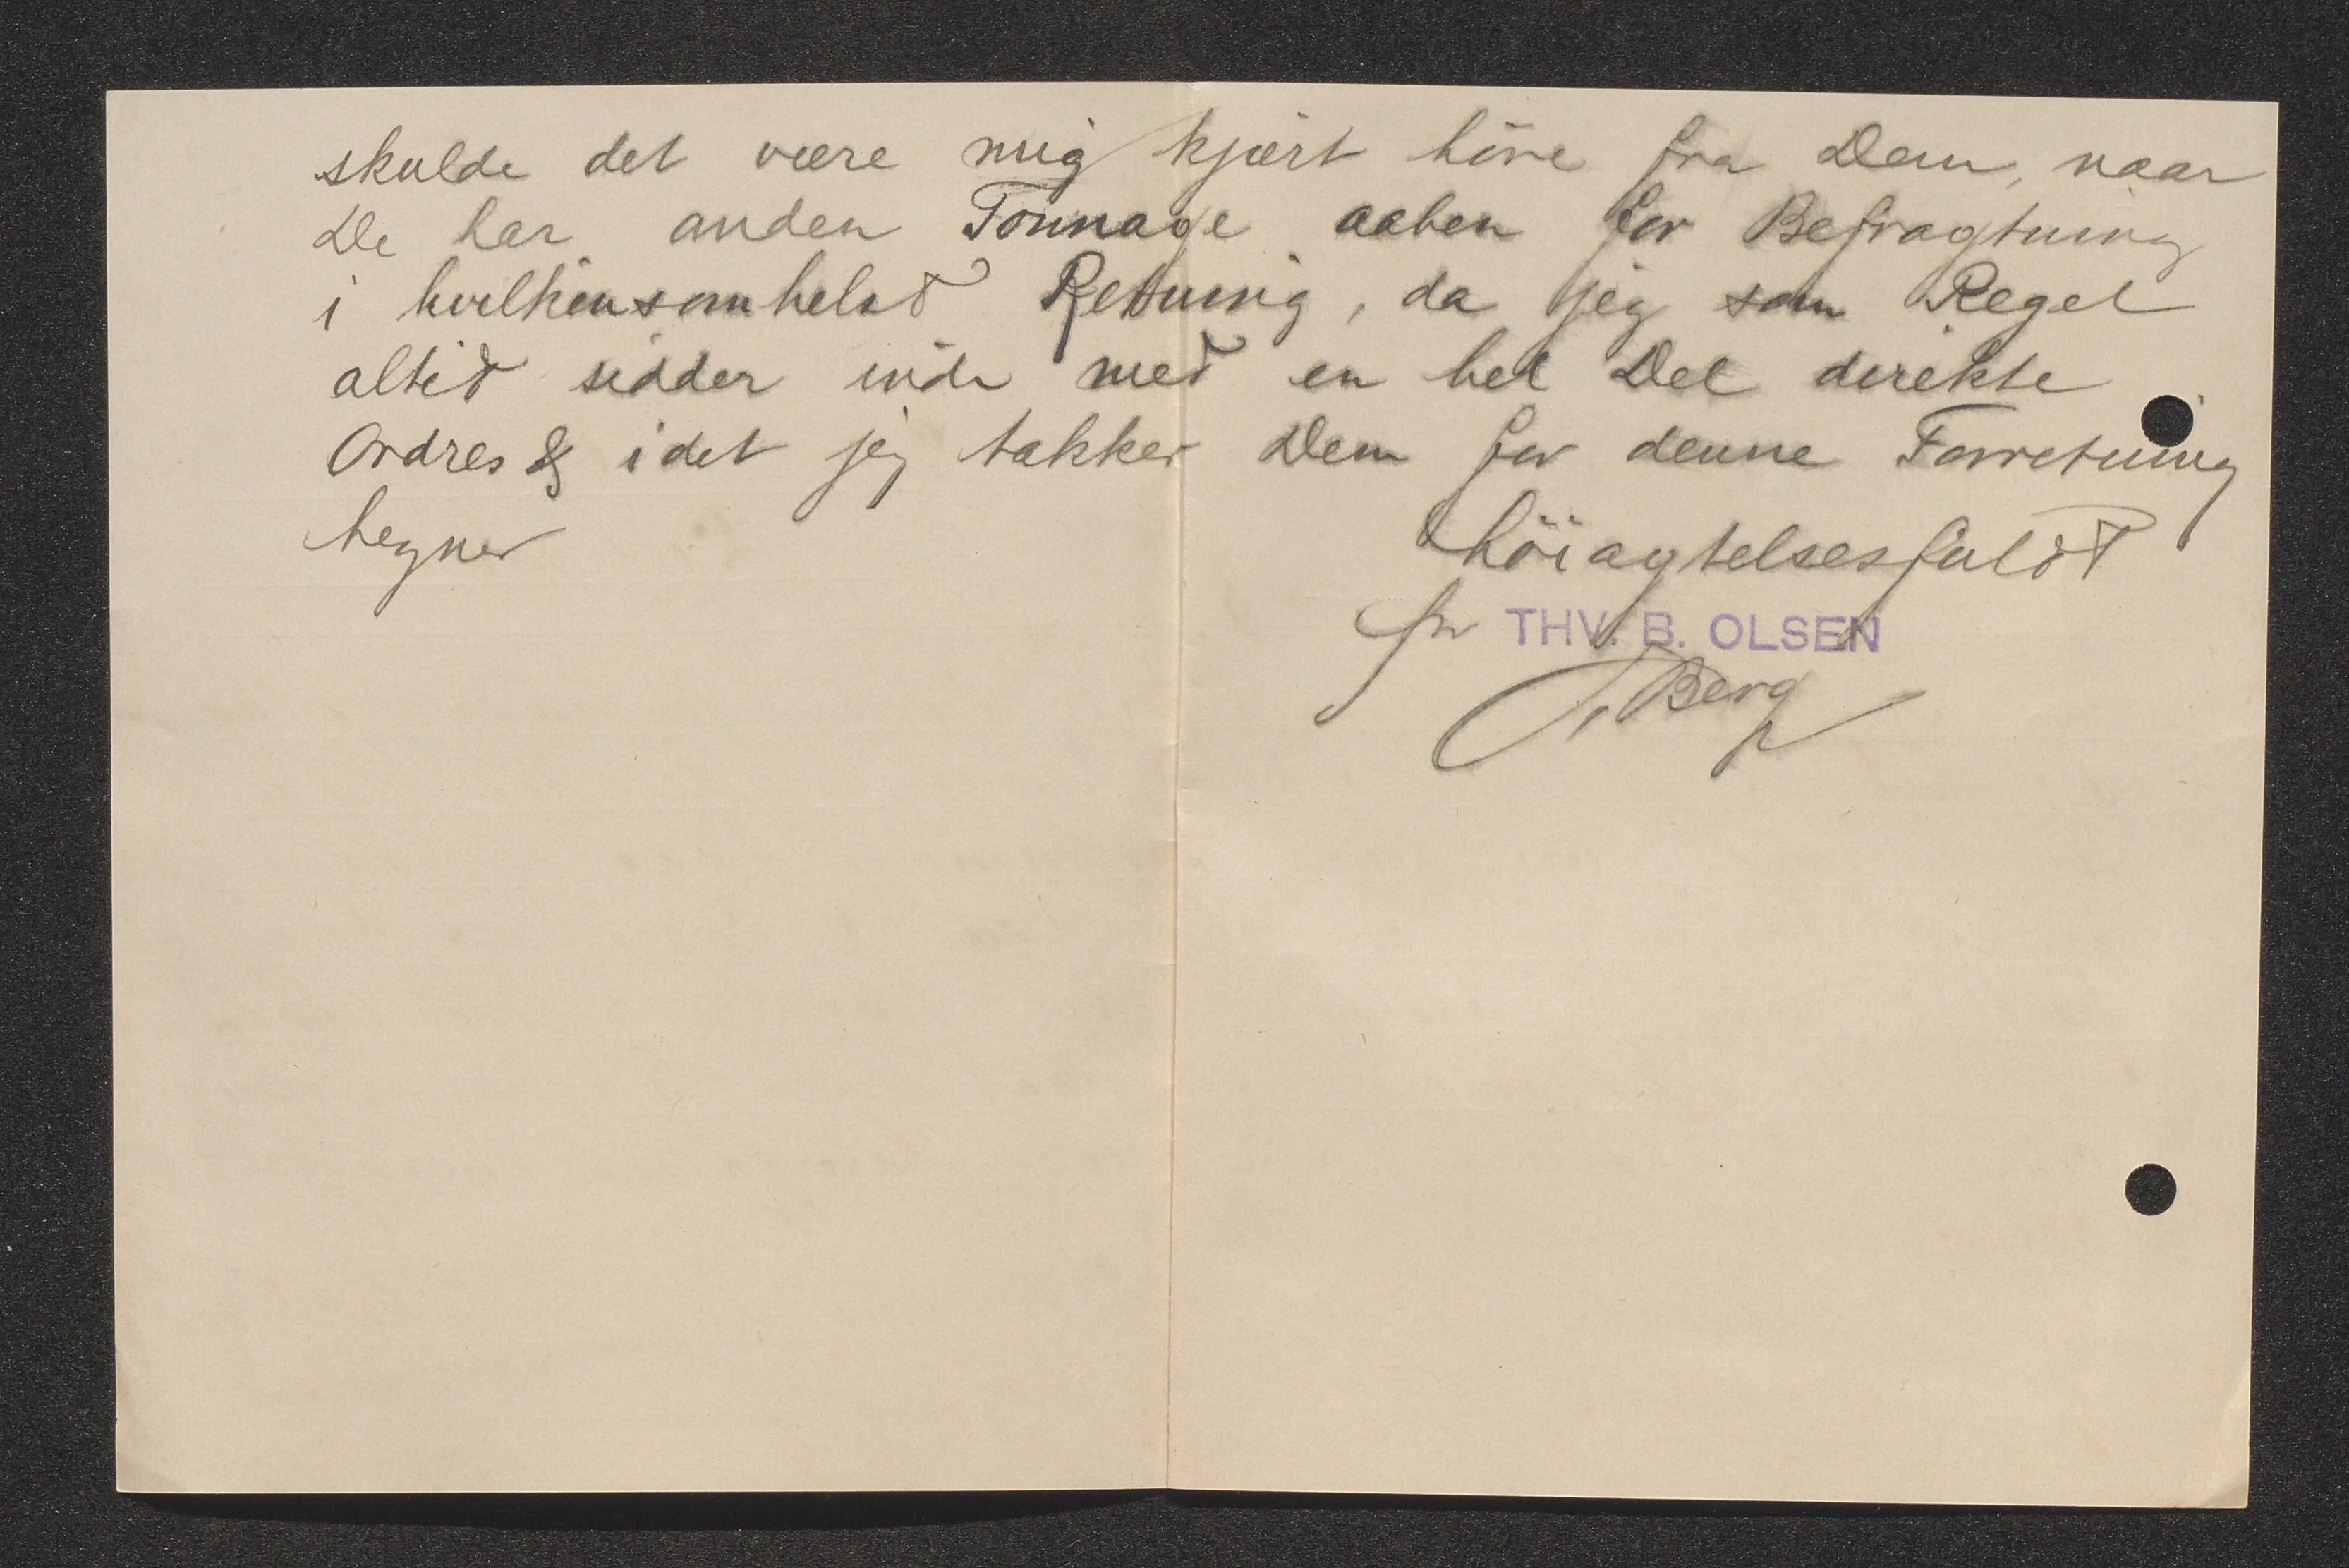 skulde det være mig kjært höre fra Dem, naar
De har anden Tonnage aaben for Befragtning
i hvilkensomhelst Retning, da jeg som Regel
altid sidder inde med en hel Del direkte
Ordres & idet jeg takker Dem for denne Forretning
tegner
höiagtelsesfuldt
for THV. B. OLSEN
Berg